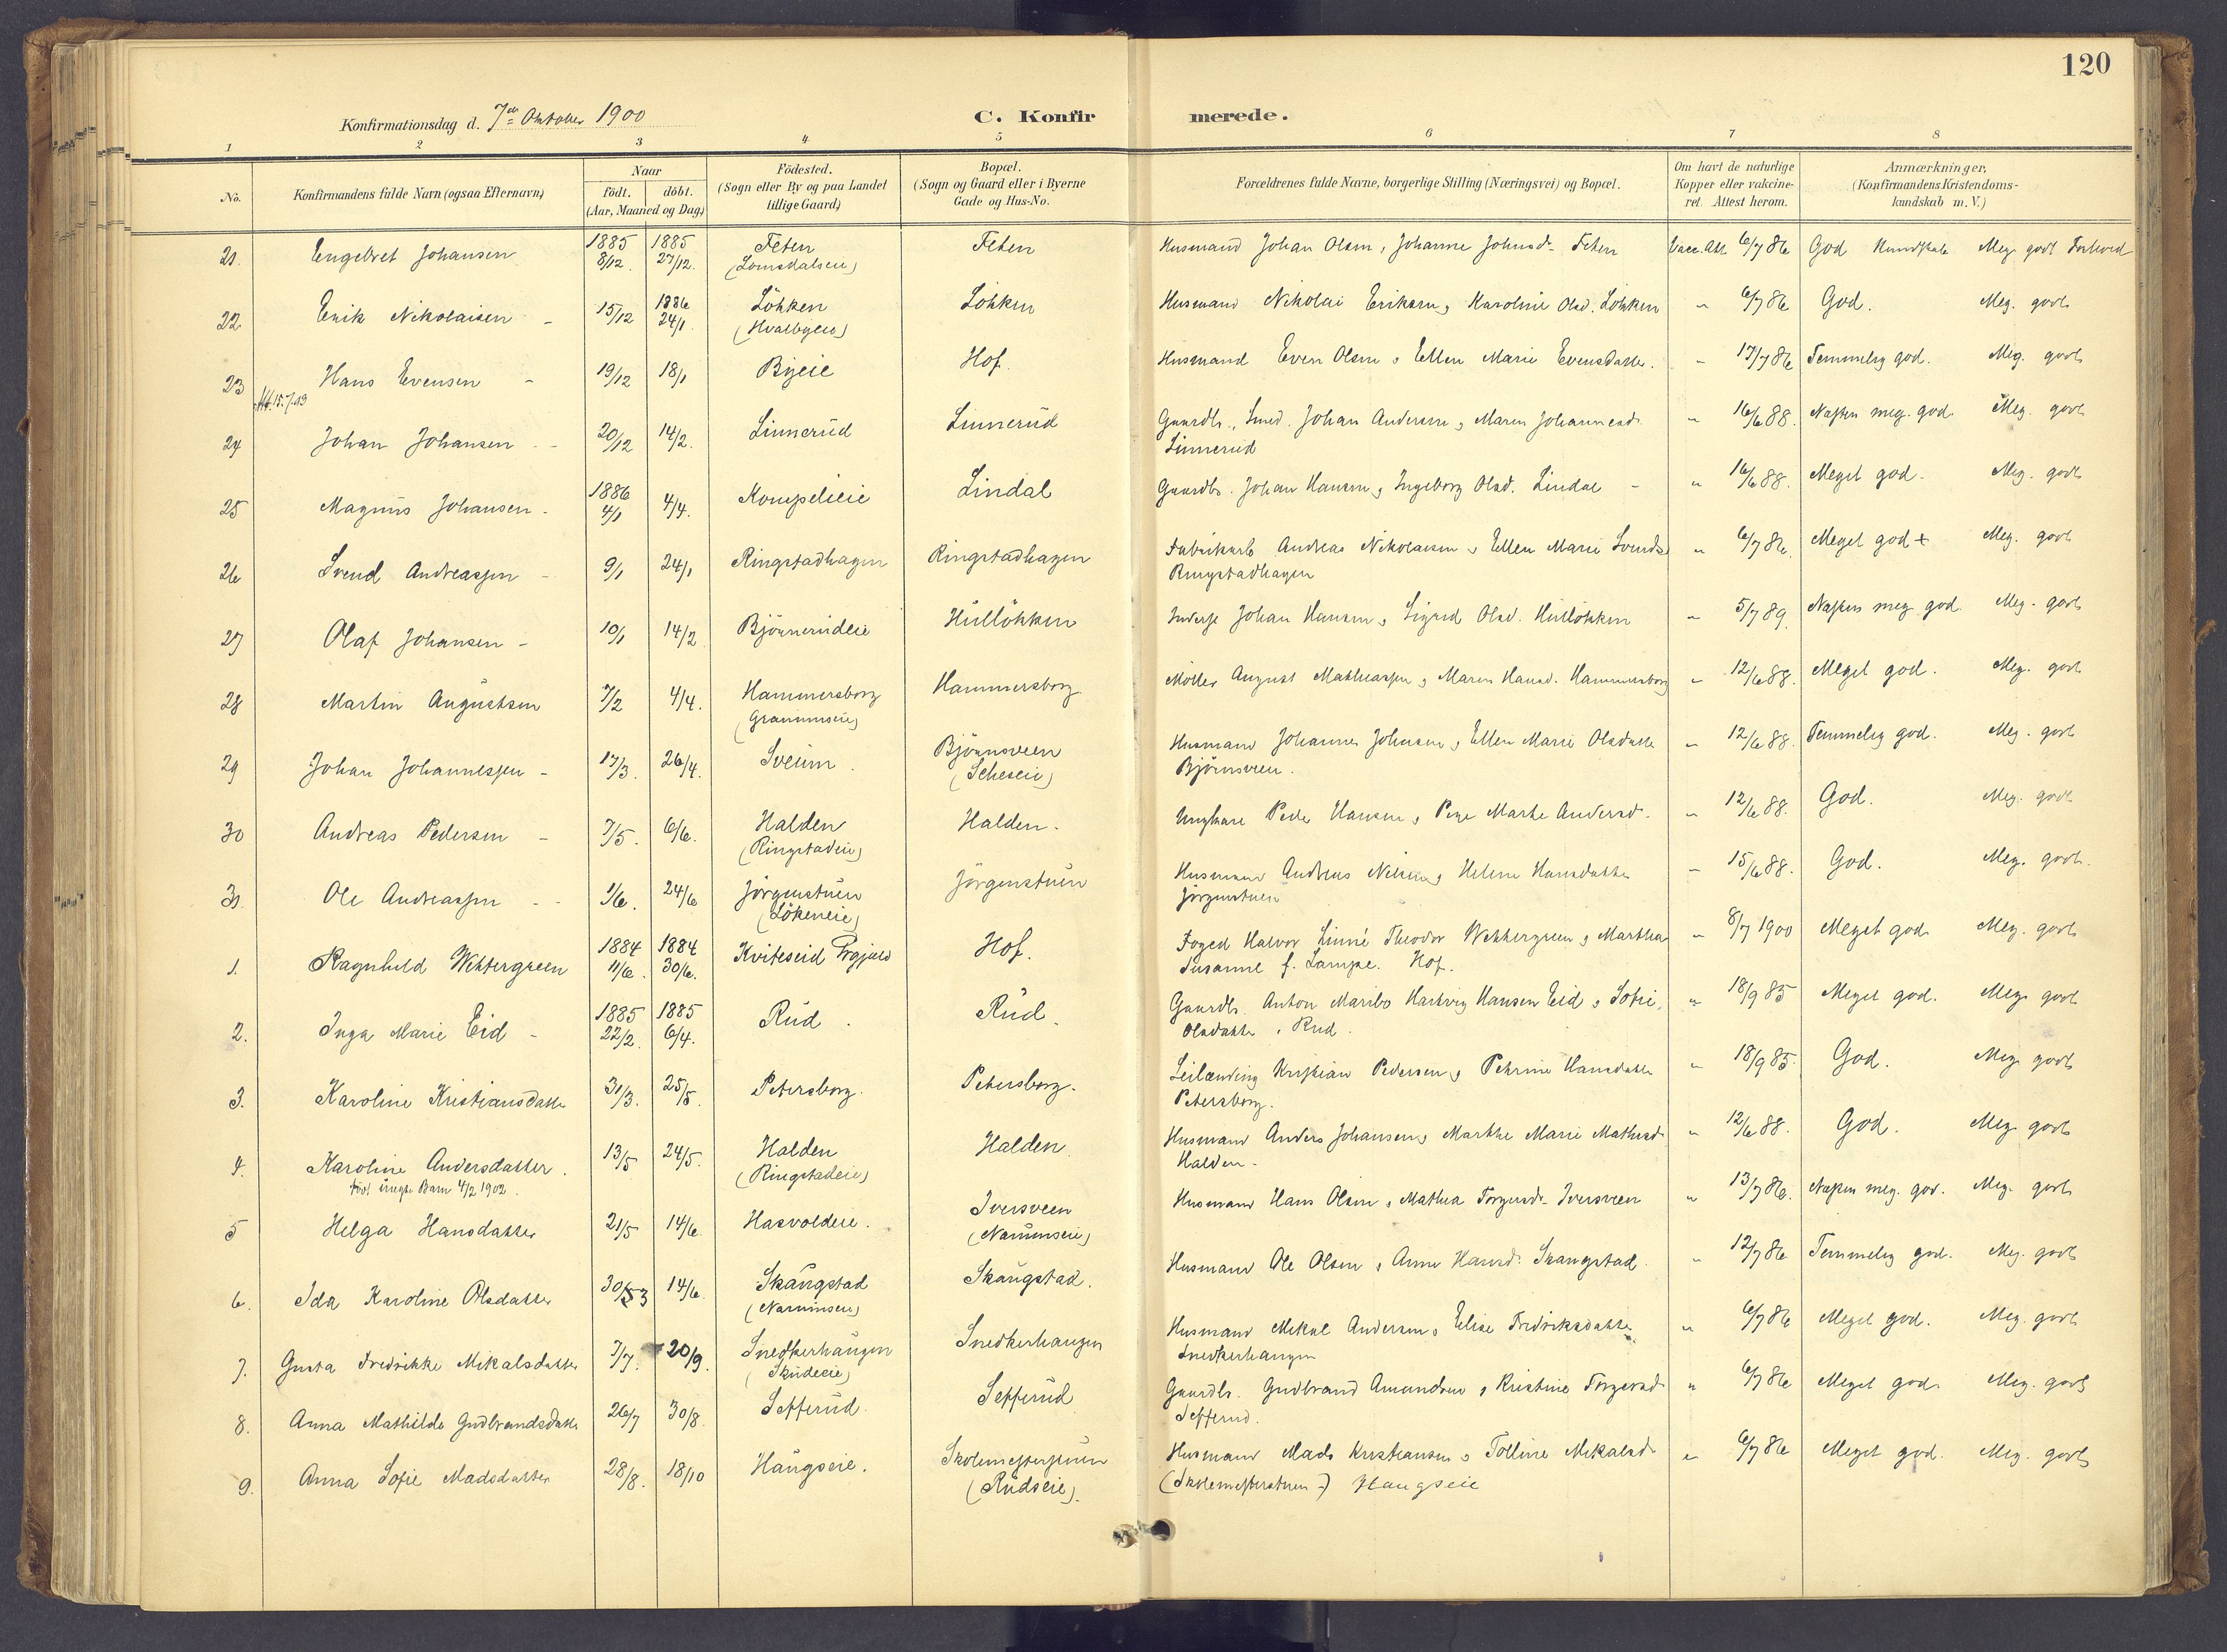 120
Konfirmationsdag d. 7de Oktober 1900 C. Konfirmerede.
1 2 3 4 5 6 7 8
No. Konfirmandens fulde Navn (ogsaa Efternavn) Naar födt. döbt. (Aar, Maaned og Dag) Födested. (Sogn eller By og paa Landet tillige Gaard) Bopæl. (Sogn og Gaard eller i Byerne Gade og Hus-No. Forældrenes fulde Navne, borgerlige Stilling (Næringsvei) og Bopæl. Om havt de naturlige Kopper eller vakcineret. Attest herom. Anmærkninger, (Konfirmandens Kristendomskundskab m. V.)
21. Engebret Johansen 1885 8/12. 1885 27/12. Feten (Lomsdalseie) Feten Husmand Johan Olsen, Johanne Johnsd. Feten Vacc. Att. 6/7 86 God Kundskab Meg. godt Forhold
22 Erik Nikolaisen - 15/12 1886 24/1. Löhken (Hvalbyeie) Löhken Husmand Nikolai Eriksen, Karoline Olsd. Löhken " 6/7 86 God. Meg. godt
23 Hans Evensen - 19/12 18/1 Byeie Hof. Husmand Even Olsen, Ellen Marie Evensdatter. " 17/7 86 Temmelig god. Meg. godt
Att. 15.7.03
24 Johan Johansen - - 20/12 14/2. Linnerud Linnerud Gaardb., Smed. Johan Andersen, Maren Johannesd. " 16/6 88. Næsten meg. god. Meg. godt
Linnerud
25 Magnus Johansen - 1886 4/1 4/4. Kompelieie Lindal Gaardbr. Johan Hansen, Ingeborg Olsd. Lindal - " 16/6 88. Meget god. Meg. godt
26 Svend Andreassen - 9/1 24/1 Ringstadhagen Ringstadhagen Fabrikarb. Andreas Nikolaisen, Ellen Marie Svendsd " 6/7 86. Meget god + Meg. godt
Ringstadhagen
27 Olaf Johansen - 10/1 14/2 Björnerudeie Hullökken Inderst Johan Hansen, Sigrid Olsd. Hullökken " 5/7 89. Næsten meg. god. Meg. godt
28 Martin Augustsen 7/2 4/4. Hammersborg (Granumseie) Hammersborg Möller August Mathiassen, Maren Hansd. Hammersborg " 12/6 88. Meget god. Meg. godt
29 Johan Johannessen - 17/3. 26/4. Sveum. Björnsveen (Seheseie) Husmand Johannes Johnsen, Ellen Marie Olsdatter " 12/6 88. Temmelig god. Meg. godt
Björnsveen.
30 Andreas Pedersen - 7/5. 6/6. Halden (Ringstadeie) Halden. Ungkare Peder Hansen, Pige Marthe Andersd. " 12/6 88. God. Meg. godt
31. Ole Andreassen - - 1/6. 24/6 Jörgenstuen (Lökeneie) Jörgenstuen Husmand Andreas Nilsen, Helene Hansdatter " 15/6 88. God. Meg. godt.
Jörgenstuen
1. Ragnhild Wettergreen 1884 11/6. 1884 30/6. Kviteseid Prgjæld Hof. Foged Halvor Linné Theodor Wettergreen, Martha " 8/7 1900 Meget god Meg. godt
Susanne f. Lampe. Hof.
2. Inga Marie Eid - 1885 22/2. 1885 6/4. Rud. Rud. Gaardb. Anton Maribo Hartvig Hansen Eid, Sofie " 18/9 85 Meget god. Meg. godt
Olsdatter, Rud.
3. Karoline Kristiansdatter 31/3. 25/5. Petersborg. Petersborg. Leilending Kristian Pedersen, Petrine Hansdatter " 18/9 85. God. Meg. godt
Petersborg.
4. Karoline Andersdatter. 13/5 24/5. Halden (Ringstadeie) Halden. Husmand Anders Johansen, Marthe Marie Mathisd. " 12/6 88. God. Meg. godt
födt uegte Barn 4/2 1902. Halden.
5 Helga Hansdatter 21/5 14/6. Hasvoldeie. Iversveen (Narumseie) Husmand Hans Olsen, Mathea Torgersd. Iversveen " 13/7 86. Næsten meg. god. Meg. godt
6. Ida Karoline Olsdatter 30/3 14/6. Skaugstad (Narumseie) Skaugstad. Husmand Ole Olsen, Anne Hansd. Skaugstad. " 12/7 86 Temmelig god. Meg. godt
7. Gusta Fredrikke Mikalsdatter 7/7. 20/9. Snedkerhaugen (Skudeeie) Snedkerhaugen Husmand Mikal Andersen, Elise Fredriksdatter " 6/7 86 Meget god. Meg. godt
Snedkerhaugen
8. Anna Mathilde Gudbrandsdatter 26/7 30/8. Sefferud. Sefferud Gaardb. Gudbrand Amundsen, Kristine Torgersd. " 6/7 86 Meget god. Meg. godt
Sefferud.
9. Anna Sofie Madsdatter 28/8. 18/10 Haugseie. Skolemesterstuen (Rudseie). Husmand Mads Kristiansen, Tolline Mikalsd. " 6/7 86 Meget god. Meg. godt
(Skolemesterstuen -) Haugseie